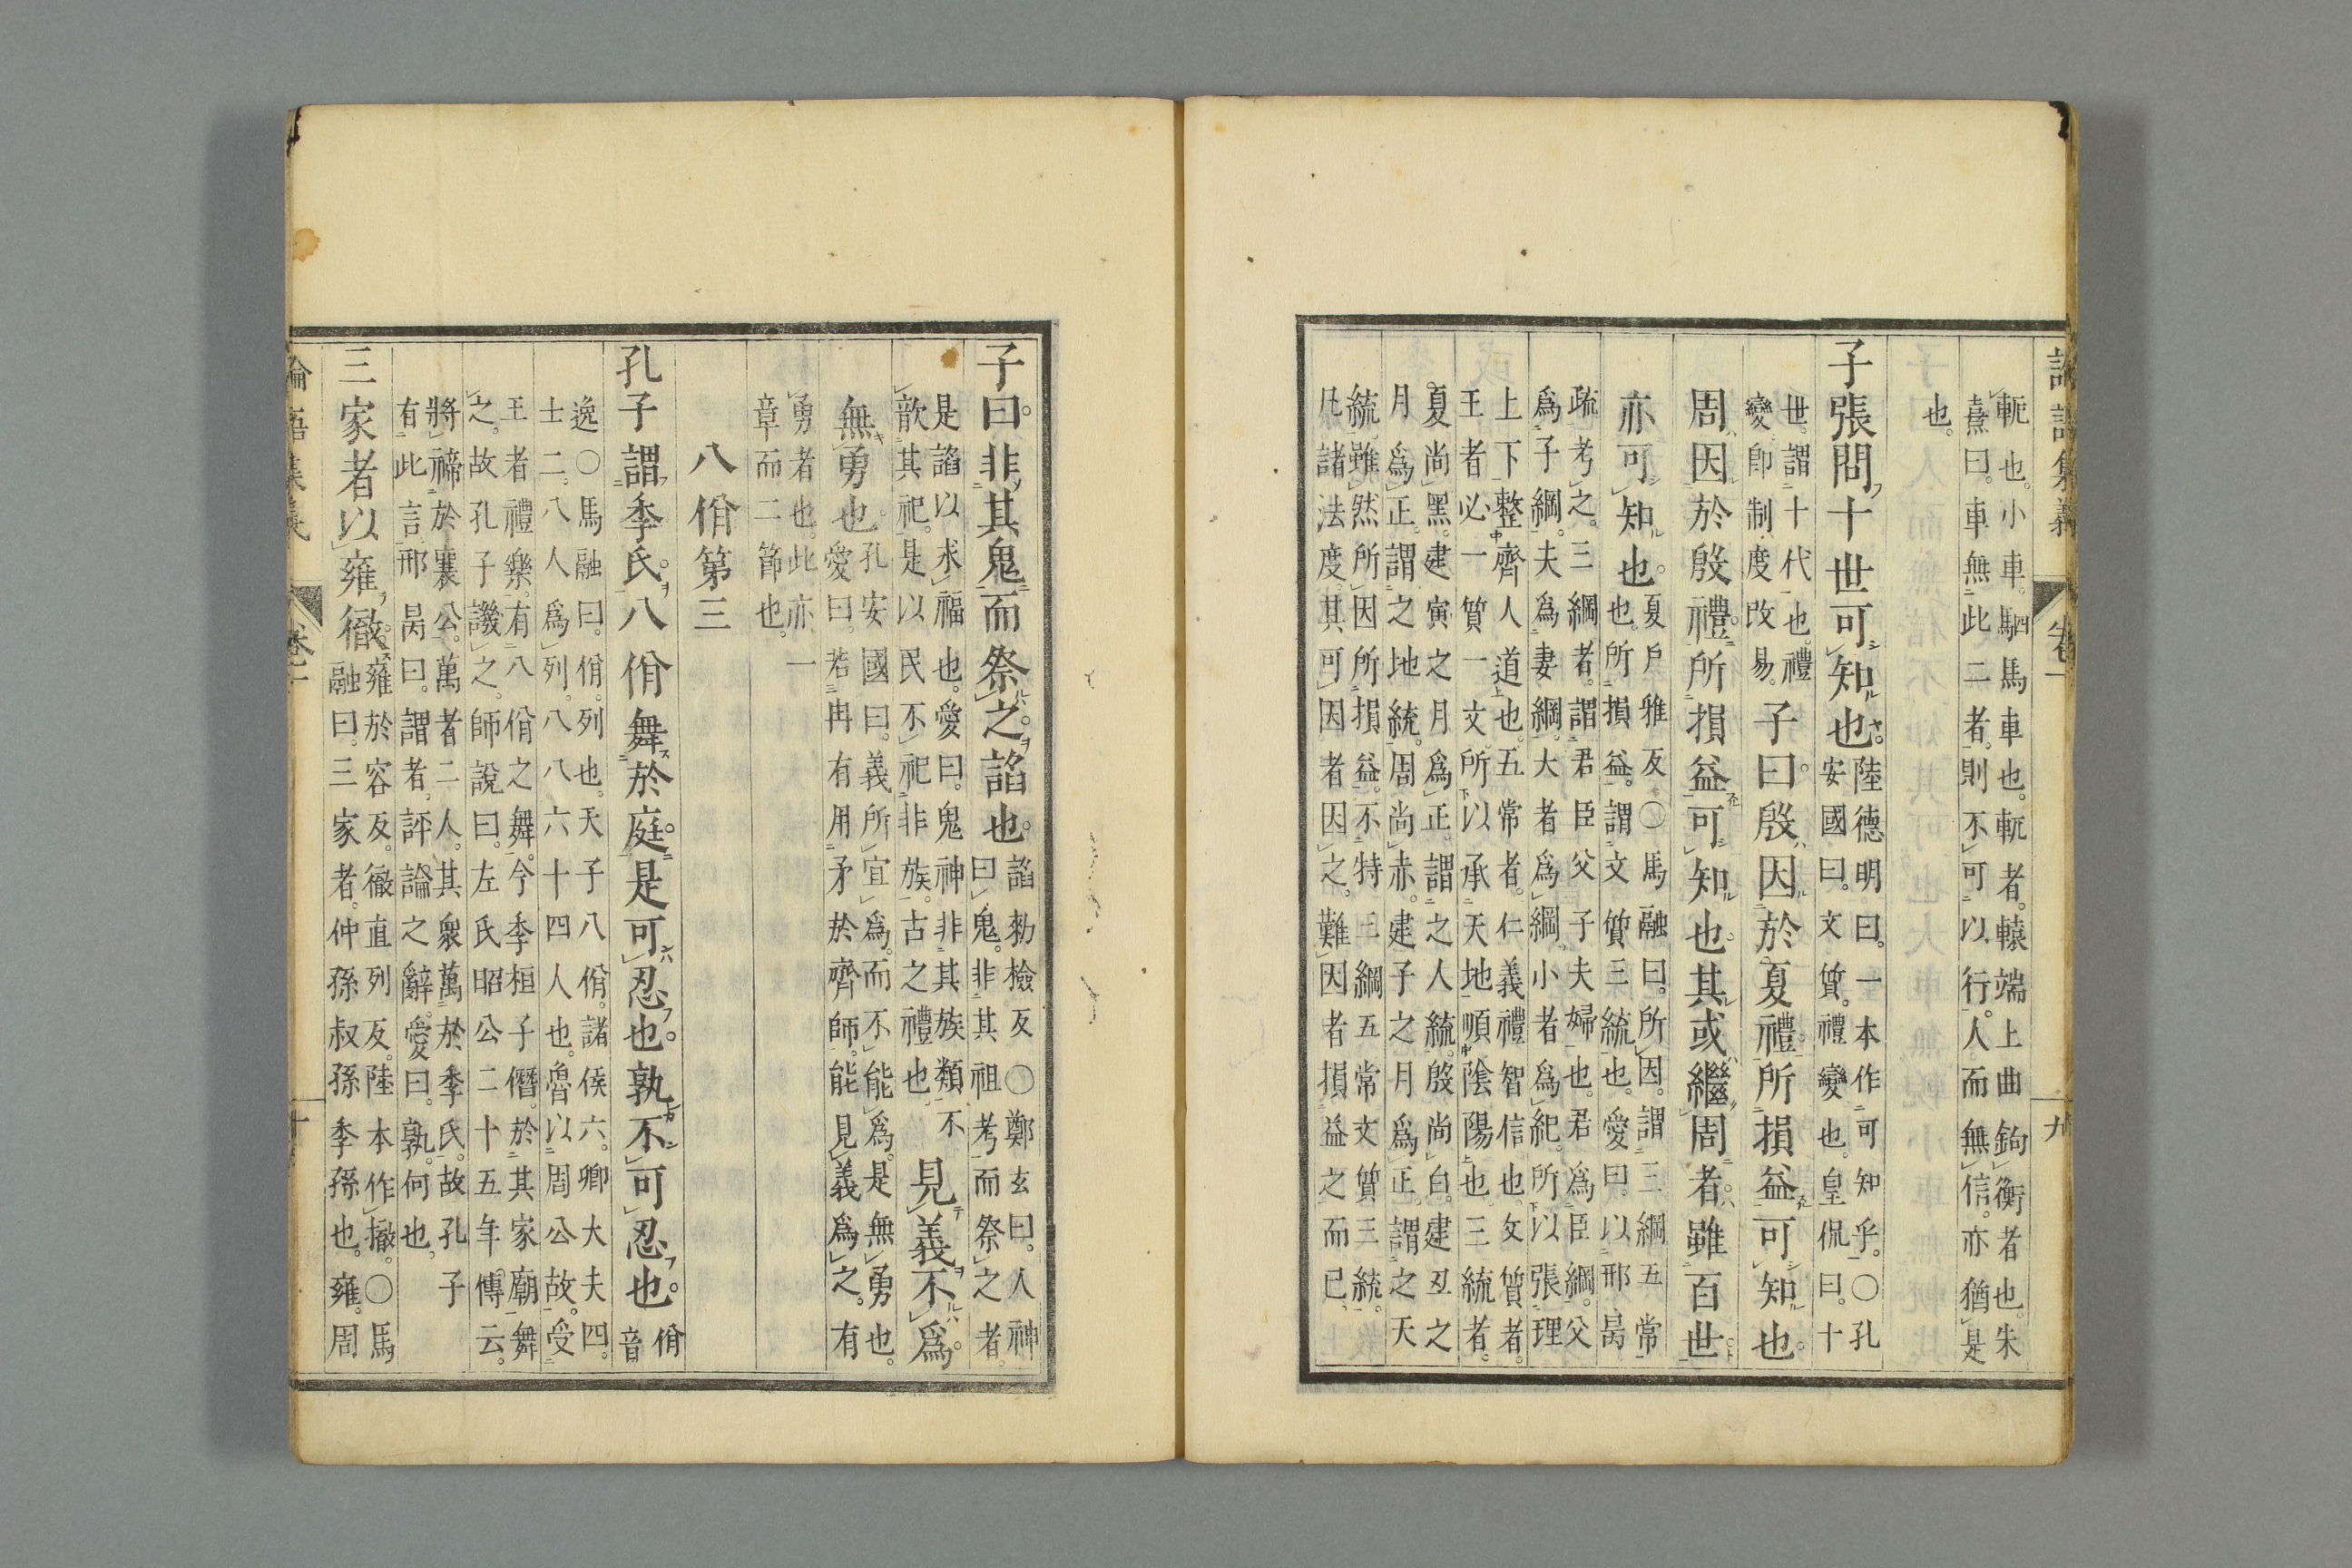 軏也。小車。駟馬車也。軏者。轅端上曲鉤衡者也。朱
熹曰。車無此二者。則不可以行。人而無信。亦猶是
也。
子張問十世可知也。陸德明曰。一本作可知乎。〇孔
安國曰。文質。禮變也。皇侃曰。十
世。謂十代也。禮
變卽制度改易。
子曰。殷因於夏禮。所損益可知也。
周因於殷禮。所損益可知也。其或繼周者。雖百世
亦可知也。
夏戶雅反〇馬融曰。所因。謂三綱五常
也。所損益。謂文質三統也。愛曰。以邢昺
疏考之。三綱者。謂君臣父子夫婦也。君爲臣綱。父
爲子綱。夫爲妻綱。大者爲綱。小者爲紀。所以張理
上下整齊人道也。五常者。仁義禮智信也。文質者。
王者必一質一文。所以承天地順陰陽也。三統者。
夏尚黑。建寅之月爲正。謂之人統。殷尚白。建丑之
月爲正。謂之地統。周尚赤。建子之月爲正。謂之天
統。雖然所因所損益。不特三綱五常文質三統。
凡諸法度。其可因者因之。難因者損益之而已。
論語集義
卷一
九
子曰。非其鬼而祭之。諂也。
諂勑檢反〇鄭玄曰。人神
曰鬼。非其祖考而祭之者。
是諂以求福也。愛曰。鬼神非其族類不
歆其祀。是以民不祀非族。古之禮也。
見義不爲。
無勇也。
孔安國曰。義所宜爲。而不能爲。是無勇也。
愛曰。若冉有用矛於齊師。能見義爲之。有
勇者也。此亦一
章而二節也。
八佾第三
孔子謂季氏。八佾舞於庭。是可忍也。孰不可忍也。
佾
音
逸〇馬融曰。佾。列也。天子八佾。諸侯六。卿大夫四。
士二。八人爲列。八八六十四人也。魯以周公故。受
王者禮樂。有八佾之舞。今季桓子僭。於其家廟舞
之。故孔子譏之。師說曰。左氏昭公二十五年傳云。
將禘於襄公。萬者二人。其衆萬於季氏。故孔子
有此言。邢昺曰。謂者。評論之辭。愛曰。孰。何也。
三家者以雍徹。
雍於容反。徹直列反。陸本作撤。〇馬
融曰。三家者。仲孫叔孫季孫也。雍。周
論語集義
卷一
十